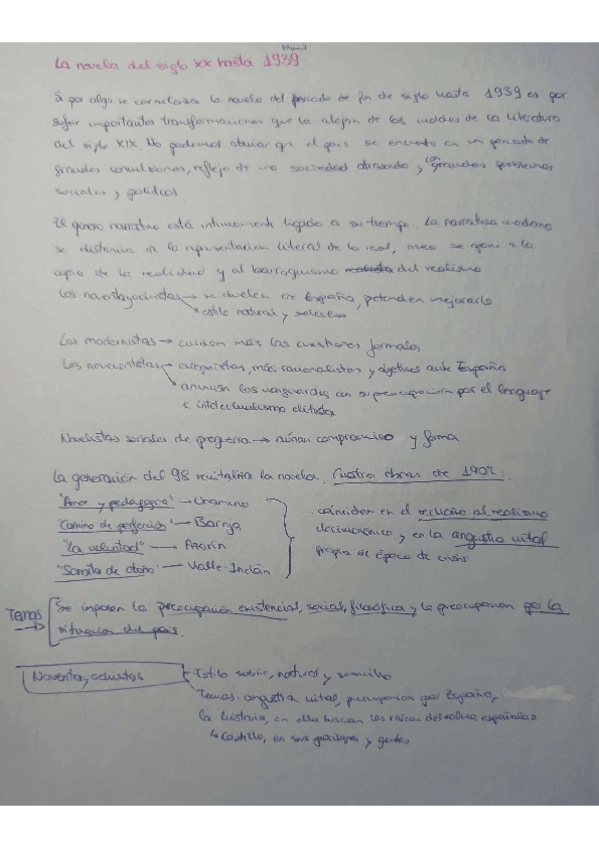 La novela del siglo XX hasta 1939
Si por algo se caracteriza la novela del periodo de fin de siglo hasta 1939 es por
sufrir importantes transformaciones que la alejan de los moldes de la literatura
del siglo XIX. No podemos obviar que el país se encuentra en un periodo de
grandes convulsiones, reflejo de una sociedad atrasada y con grandes problemas
sociales y políticos
El género narrativo está íntimamente ligado a su tiempo. La narrativa moderna
se distancia de la representación literal de lo real, se opone a la
copia de la realidad y al barroquismo del realismo
Los noventayochistas → se duelen de España, pretenden mejorarla
→ estilo natural y
Los modernistas → cuidan más las cuestiones formales
Los novecentistas → europeístas, más racionalistas y objetivos ante España
→ anuncian las vanguardias con su preocupación por el lenguaje
e intelectualismo elitista
Novelistas sociales de preguerra → aúnan compromiso y forma
La generación del 98 revitaliza la novela. Cuatro obras de 1902:
"Amor y pedagogía" → Unamuno
"Camino de perfección" → Baroja
"La voluntad" → Azorín
"Sonata de otoño" → Valle-Inclán
coinciden en el rechazo al realismo
decimonónico y en la angustia vital
propia de época de crisis
Temas → Se imponen la preocupación existencial, social, filosófica y la preocupación por la
situación del país.
Noventayochistas
Estilo sobrio, natural y sencillo
Temas: angustia vital, preocupación por España,
la historia, en ella buscan las raíces del alma española
↳ Castilla, en sus paisajes y gentes